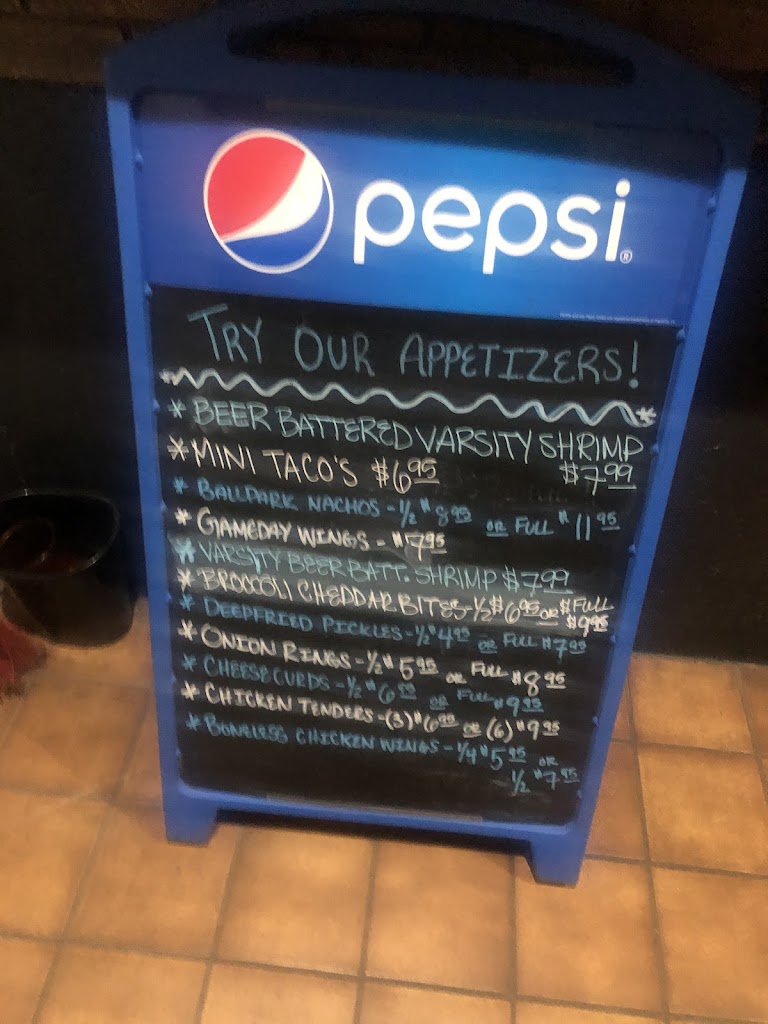 pepsi®
TRY OUR APPETIZERS!
* BEER BATTERED VARSITY SHRIMP
$7.99
* MINI TACO'S $6.95
* BALLPARK NACHOS - 1/2 $8.95 OR FULL $11.95
* GAMEDAY WINGS - $7.95
* VARSITY BEER BATT. SHRIMP $7.99
* BROCCOLI CHEDDAR BITES - 1/2 $6.95 OR FULL
$9.95
* DEEPFRIED PICKLES - 1/2 $4.95 OR FULL $7.95
* ONION RINGS - 1/2 $5.95 OR FULL $8.95
* CHEESE CURDS - 1/2 $6.95 OR FULL $9.95
* CHICKEN TENDERS - (3) $6.95 OR (6) $9.95
* BONELESS CHICKEN WINGS - 1/4 $5.95 OR
1/2 $7.95